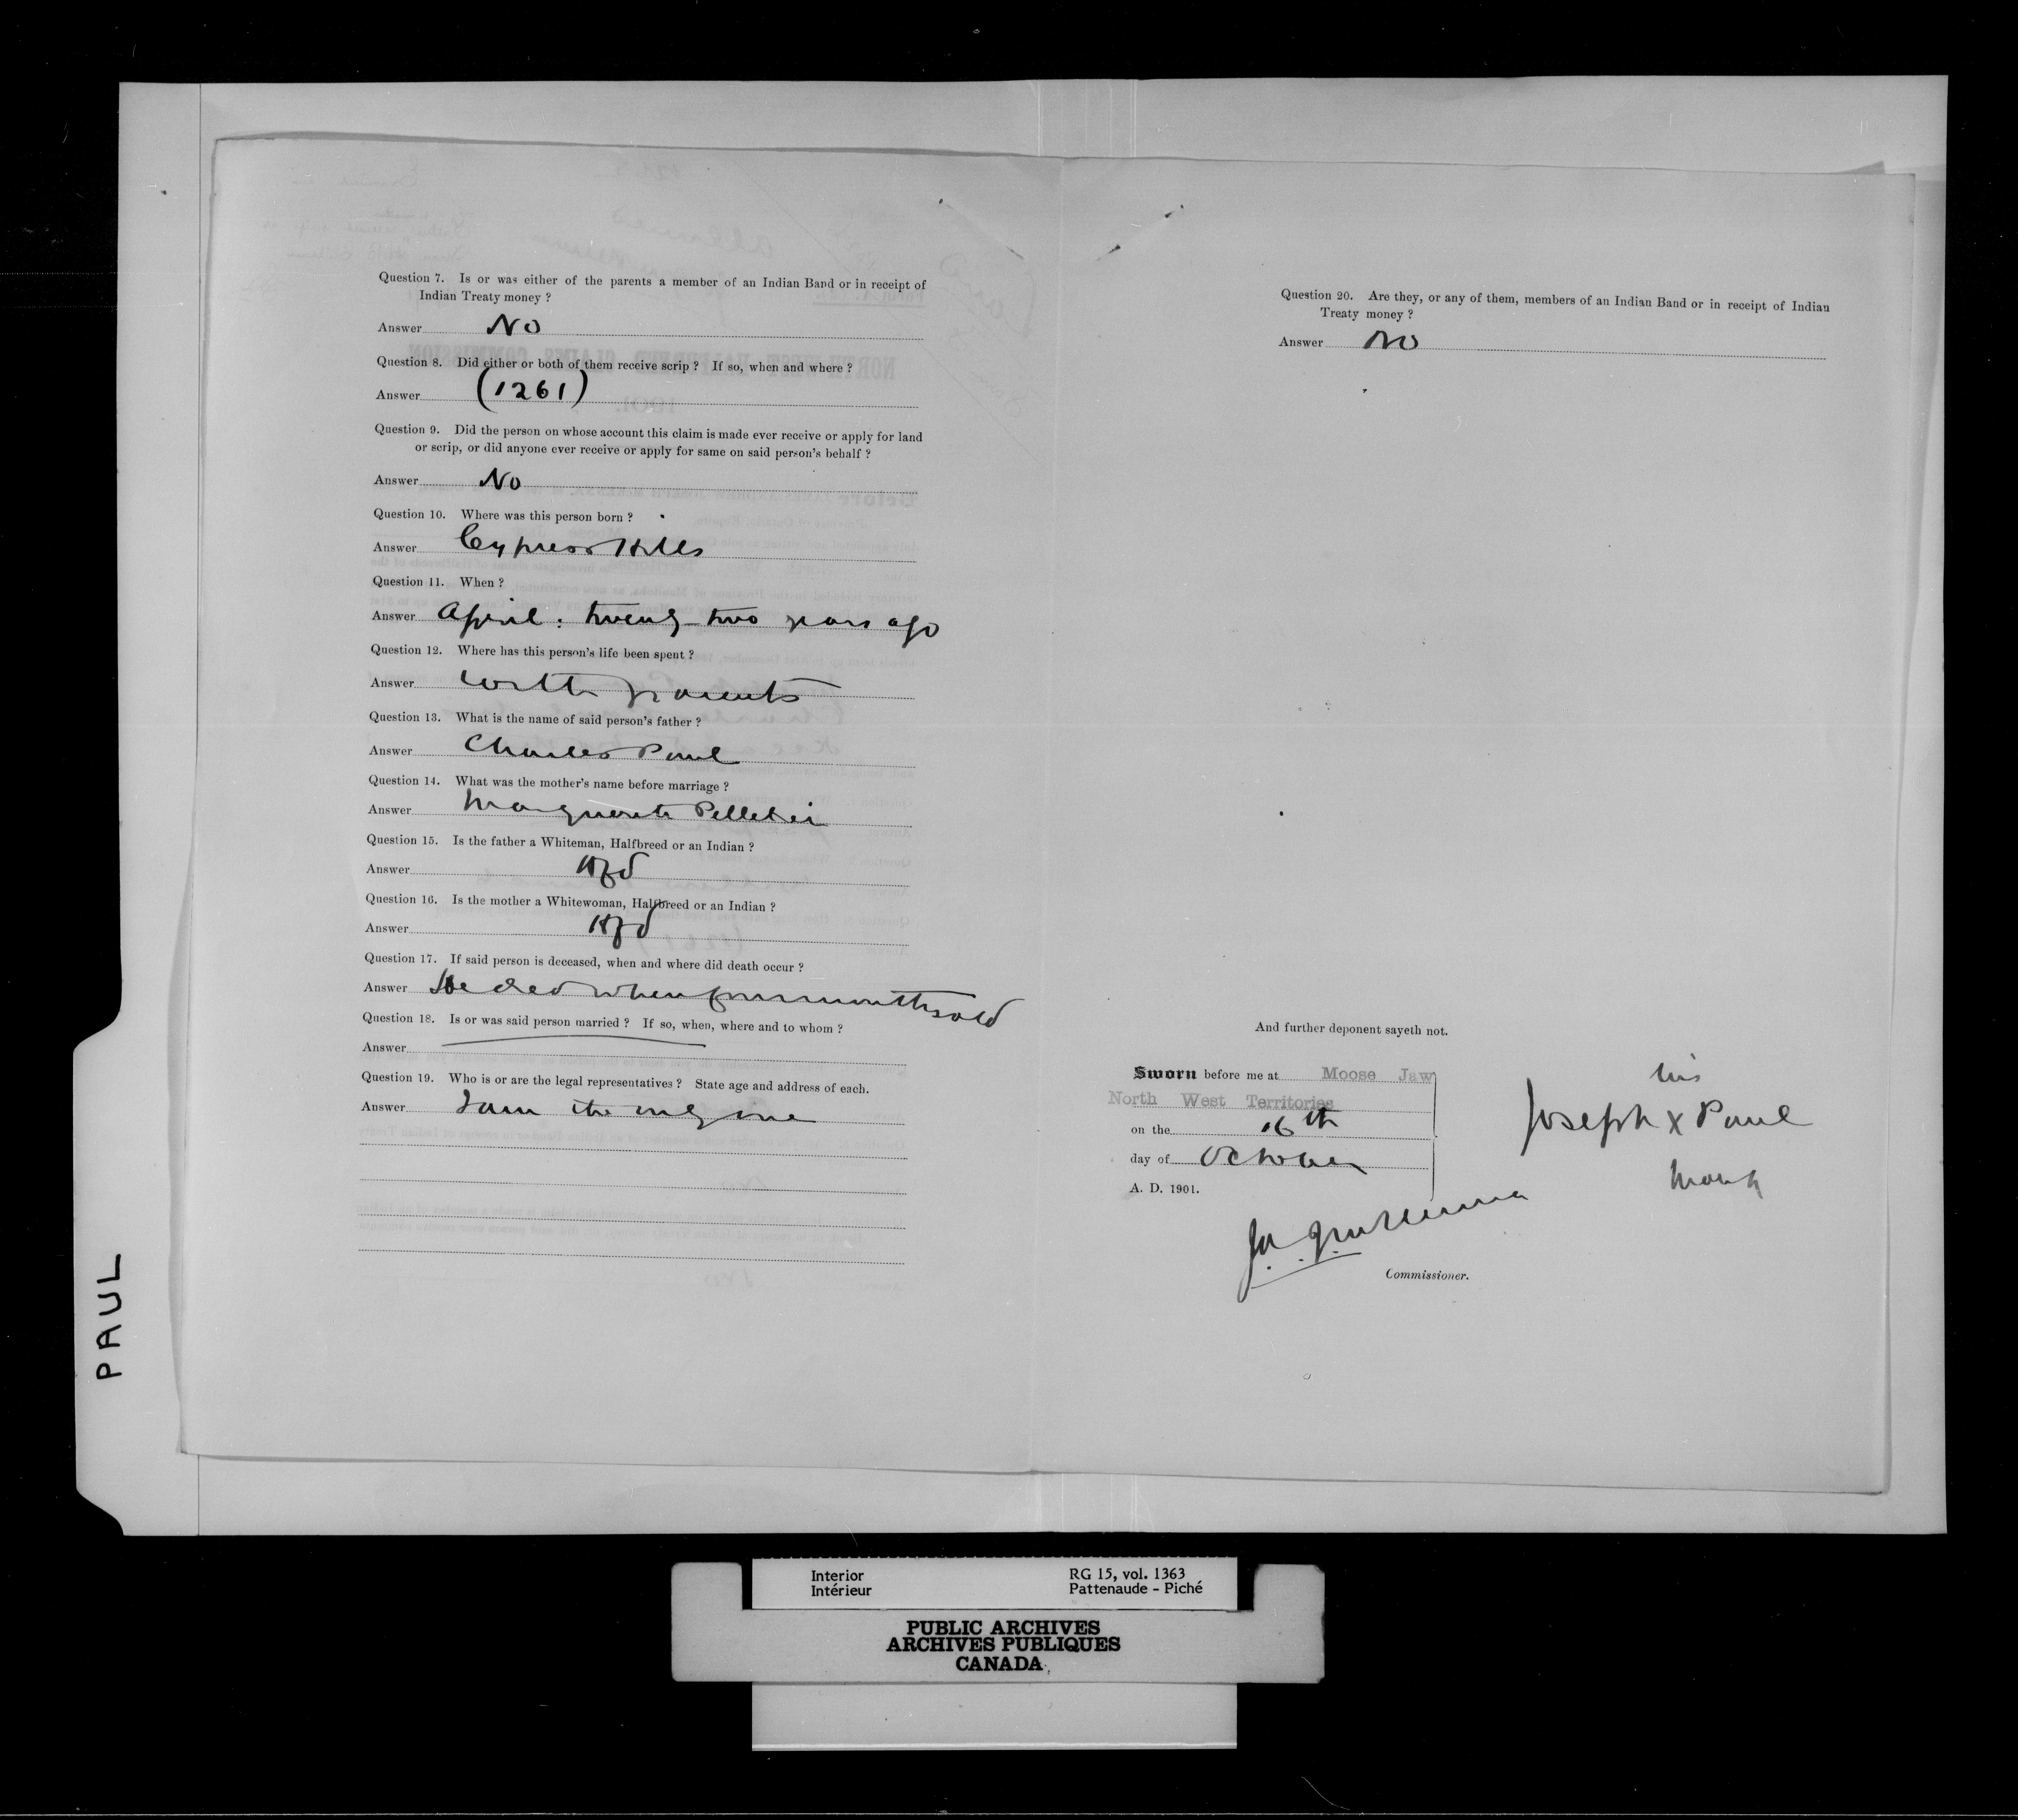 Question 7. Is or was either of the parents a member of an Indian Band or in receipt of
Indian Treaty money ?
Answer No
Question 8. Did either or both of them receive scrip ? If so, when and where ?
Answer (1261)
Question 9. Did the person on whose account this claim is made ever receive or apply for land
or scrip, or did anyone ever receive or apply for same on said person's behalf ?
Answer No
Question 10. Where was this person born ?
Answer Cypress Hills
Question 11. When ?
Answer April : twenty two years ago
Question 12. Where has this person's life been spent ?
Answer with parents
Question 13. What is the name of said person's father ?
Answer Charles Paul
Question 14. What was the mother's name before marriage ?
Answer Marguerite Pelletier
Question 15. Is the father a Whiteman, Halfbreed or an Indian ?
Answer Hfd
Question 16. Is the mother a Whitewoman, Halfbreed or an Indian ?
Answer Hfd
Question 17. If said person is deceased, when and where did death occur ?
Answer He died when four months old
Question 18. Is or was said person married ? If so, when, where and to whom ?
Answer
Question 19. Who is or are the legal representatives ? State age and address of each.
Answer I am the only one
Question 20. Are they, or any of them, members of an Indian Band or in receipt of Indian
Treaty money ?
Answer No
And further deponent sayeth not.
Sworn before me at Moose Jaw
North West Territories
on the 16th
day of October
A. D. 1901.
his
Joseph X Paul
mark
Commissioner.
PAUL
Interior
Intérieur
RG 15, vol. 1363
Pattenaude - Piché
PUBLIC ARCHIVES
ARCHIVES PUBLIQUES
CANADA